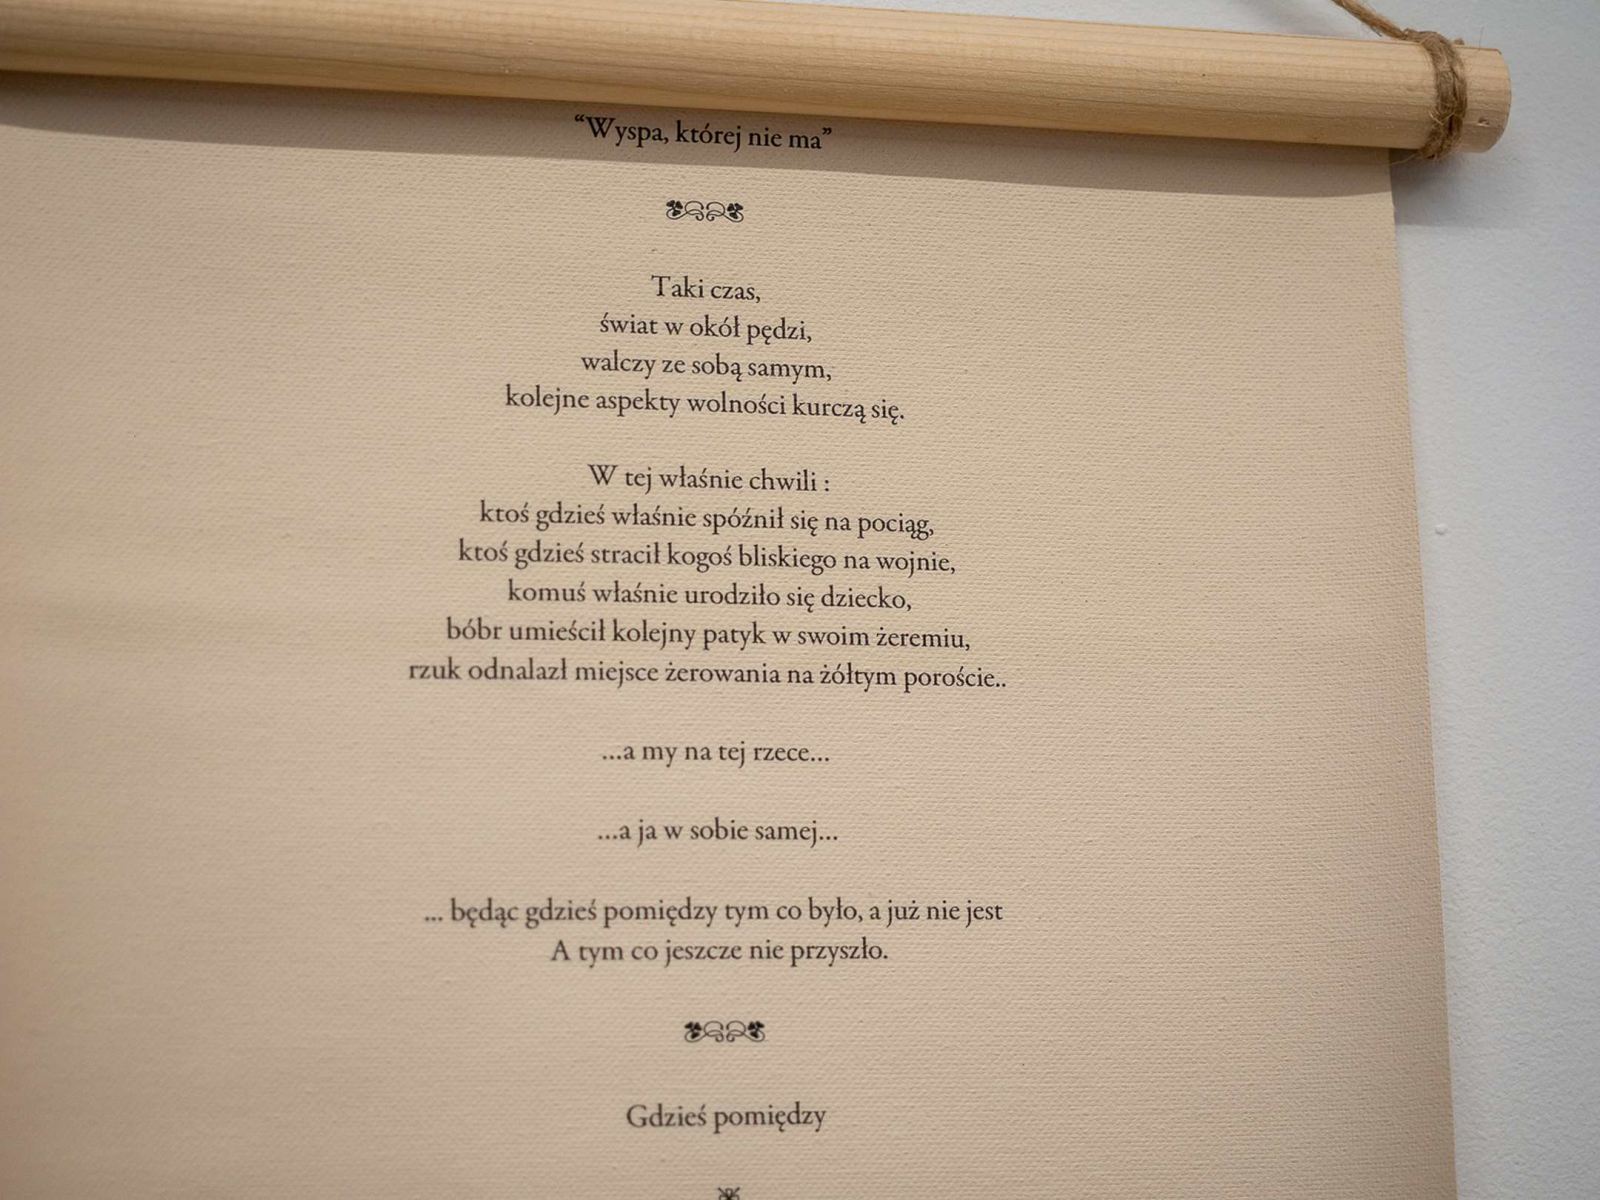 “Wyspa, której nie ma”
Taki czas,
świat w okół pędzi,
walczy ze sobą samym,
kolejne aspekty wolności kurczą się.
W tej właśnie chwili :
ktoś gdzieś właśnie spóźnił się na pociąg,
ktoś gdzieś stracił kogoś bliskiego na wojnie,
komuś właśnie urodziło się dziecko,
bóbr umieścił kolejny patyk w swoim żeremiu,
rzuk odnalazł miejsce żerowania na żółtym poroście..
...a my na tej rzece...
...a ja w sobie samej...
... będąc gdzieś pomiędzy tym co było, a już nie jest
A tym co jeszcze nie przyszło.
Gdzieś pomiędzy